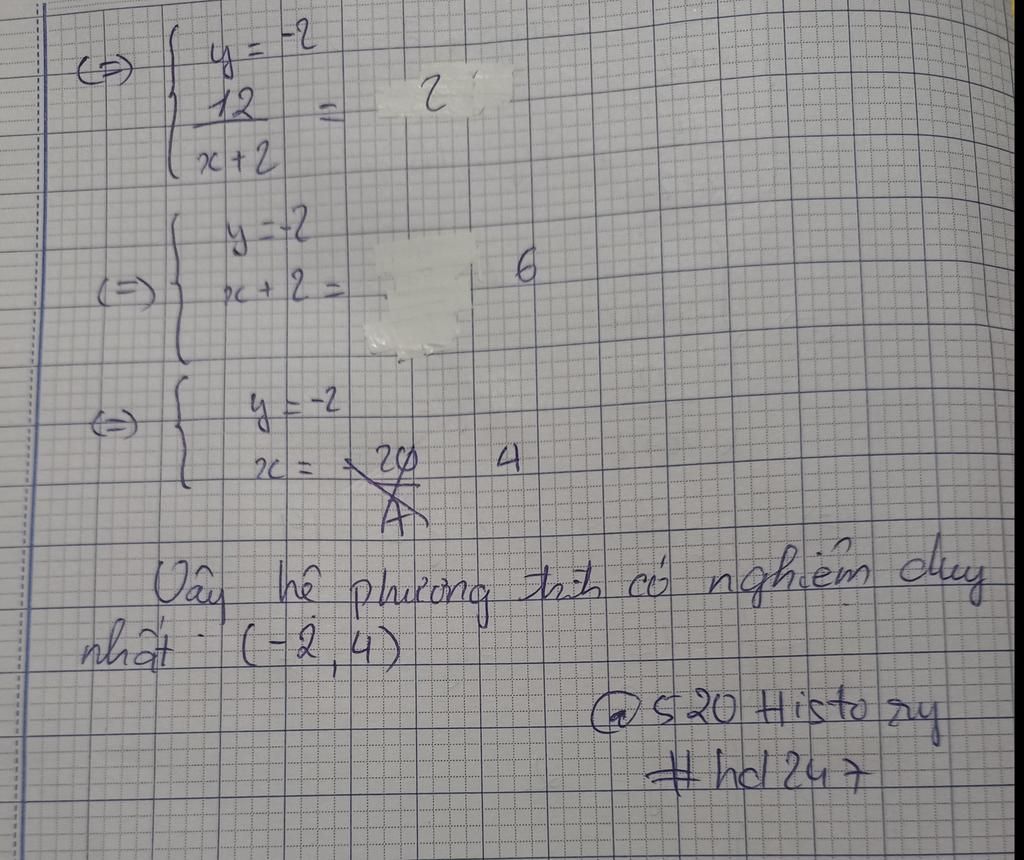 (=) { y = -2
12 / x+2 = 2
(=) { y = -2
x + 2 = 6
(=) { y = -2
x = 4
Vậy hệ phương trìh có nghiệm duy
nhất (-2, 4)
@ 520 History
# hd 247